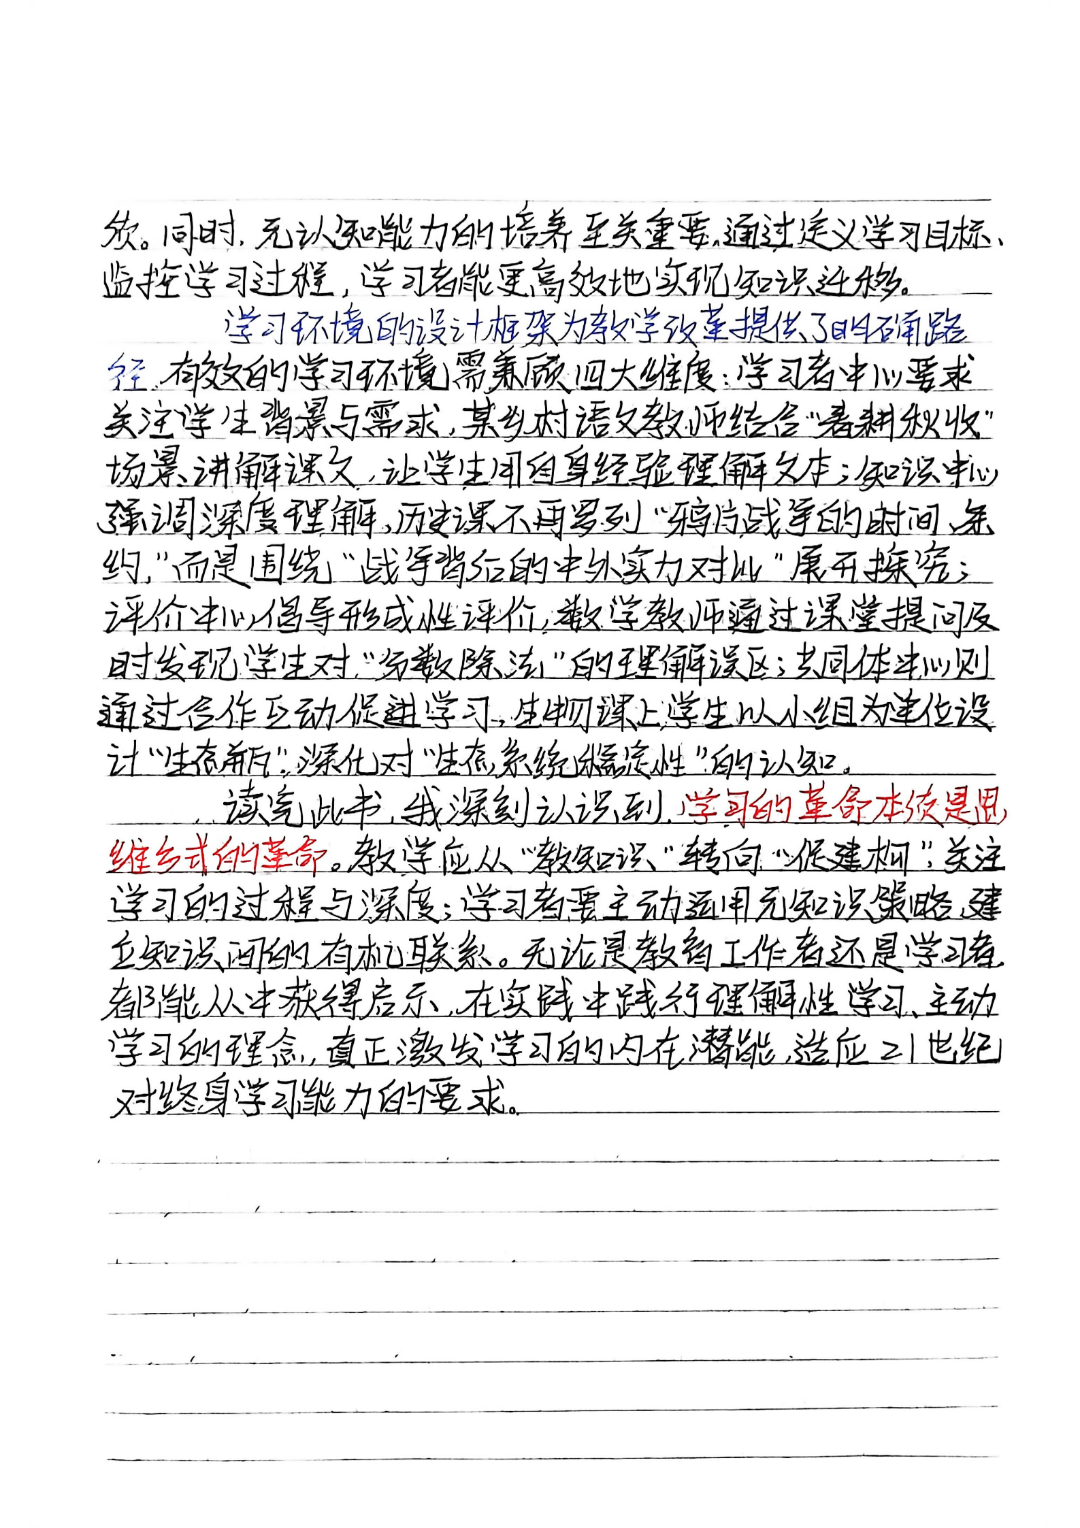 欣。同时，元认知能力的培养至关重要，通过定义学习目标、
监控学习过程，学习者能更高效地实现知识迁移。
学习环境的设计框架为教学改革提供了明确路
径。有效的学习环境需兼顾四大维度：学习者中心要求
关注学生背景与需求，某乡村语文教师结合“春耕秋收”
场景讲解课文，让学生用自身经验理解文本；知识中心
强调深度理解，历史课不再罗列“鸦片战争的时间、条
约，”而是围绕“战争背后的中外实力对比”展开探究；
评价中心倡导形成性评价，数学教师通过课堂提问及
时发现学生对“分数除法”的理解误区；共同体中心则
通过合作互动促进学习，生物课上学生以小组为单位设
计“生态瓶”，深化对“生态系统稳定性”的认知。
读完此书，我深刻认识到，学习的革命本质是思
维方式的革命。教学应从“教知识“转向“促建构”，关注
学习的过程与深度；学习者要主动运用元知识策略，建
立知识间的有机联系。无论是教育工作者还是学习者，
都能从中获得启示，在实践中践行理解性学习、主动
学习的理念，真正激发学习的内在潜能，适应21世纪
对终身学习能力的要求。